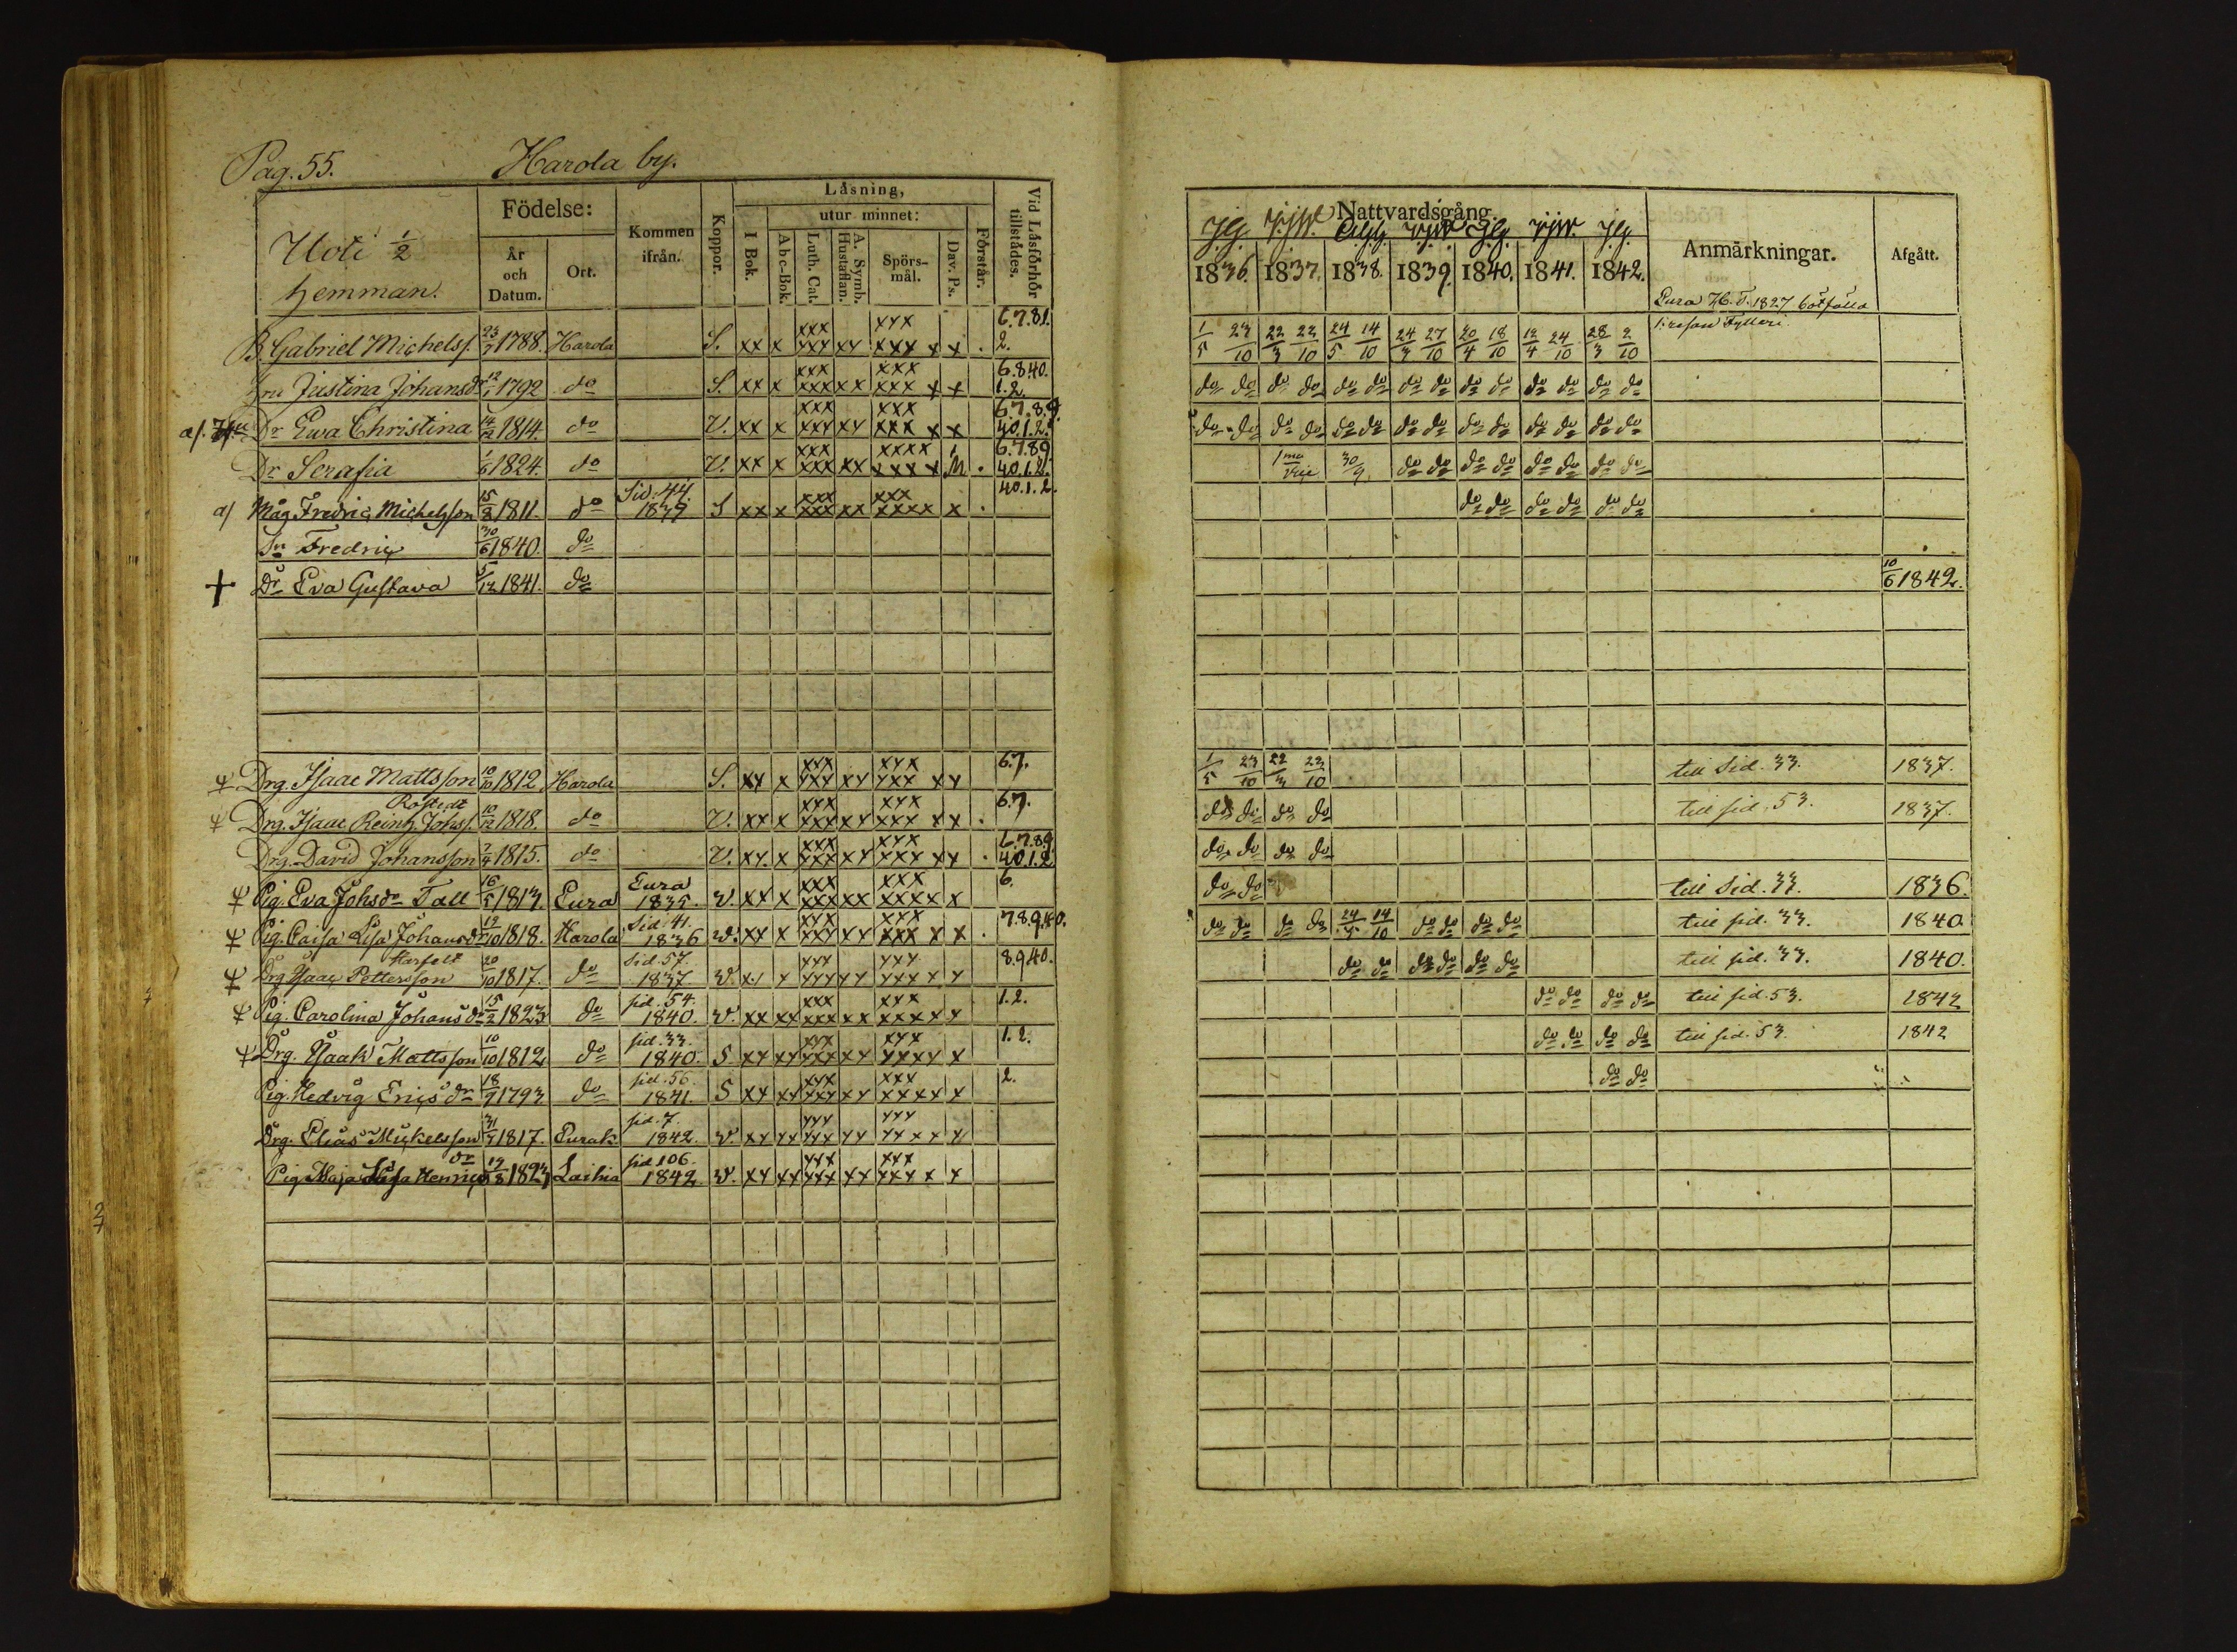 Pag. 55. Harola by.
Uoti 1/2 hemman.
Födelse:
År och Datum.
Ort.
Kommen ifrån.
Koppor.
Läsning,
utur minnet:
I Bok.
Abc-Bok.
Luth. Cat.
A. Symb. Hustaflan.
Spörsmål.
Dav. Ps.
Förstår.
Vid Läsförhör tillstädes.
B. Gabriel Michelss. 23/3 1788. Harola S. xx x xxx xxx xx xxx xxx x x . 6.7.8.1. 2.
hru Justina Johansdr 12/1 1792 do S. xx x xxx xxx xx xxx xxx x x 6.8.40. 1.2.
Dr Ewa Christina 14/12 1814. do V. xx x xxx xxx xx xxx xxx x x 6.7.8.9. 40.1.2.
Dr Serafia 1/6 1824. do V. xx x xxx xxx xx xxxx xxxx . 6.7.89 40.1.2.
a) Måg Fredric Michelsson 15/8 1811. do Sid. 44. 1839 S xx x xxx xxx xx xxx xxxx x . 40.1.2.
Sn Fredric 30/6 1840. do
+ Dr Eva Gustava 5/12 1841. do
Drg. Isaac Mattsson 10/10 1812 Harola S. xx x xxx xxx xx xxx xxx xx 6.7.
Rostedt
Drg. Isaac Reinh. Johss. 10/12 1818. do V. xx x xxx xxx xx xxx xxx xx . 6.7.
Drg. David Johansson 7/4 1815. do V. xx x xxx xxx xx xxx xxx xx . 6.7.89. 40.1.2
Pig. Eva Johsdr Tall 16/5 1813. Eura Eura 1835. v. xx x xxx xxx xx xxx xxxx x 6.
Pig. Caisa Lisa Johansdr 19/10 1818. Harola Sid. 41. 1836 v. xx x xxx xxx xx xxx xxx x x . 7.8.9.40.
Drg Isaac Pettersson 20/10 1817. do Sid. 57. 1837. v. xx x xxx xxx xx xxx xxxx x 8.9.40.
Pig. Carolina Johans dr 15/2 1823 do sid. 54. 1840. v. xx xx xxx xxx xx xxx xxxx x 1.2.
Drg. Isaak Mattsson 10/10 1812 do sid. 33. 1840. S xx xx xxx xxx xx xxx xxxx x 1.2.
Pig. Hedvig Erics dr 18/9 1793 do sid. 56. 1841. S xx xx xxx xxx xx xxx xxxx x 2.
Drg. Elias Mickelsson 31/3 1817. Eurak. sid. 7. 1842. v. xx xx xxx xxx xx xxx xxxx x
Pig. Maja Lisa Henrics dr 1823 Laihia sid 106. 1842 v. xx xx xxx xxx xx xxx xxxx x
Nattvardsgång.
1836. 1837. 1838. 1839. 1840. 1841. 1842.
Anmärkningar.
Afgått.
Eura H.T. 1827 bötfälld
1:resan Fylleri.
1/5 23/10 22/3 22/10 24/5 14/10 24/3 27/10 20/4 18/10 12/4 24/10 28/3 2/10
do do do do do do do do do do do do do do
do do do do do do do do do do do do do do
30/9 do do do do do do do do
do do do do do do
10/6 1842.
1/5 23/10 22/3 23/10 till Sid. 33. 1837.
do do do do till sid. 53. 1837.
do do do do
do do till Sid. 33. 1836.
do do do do 24/5 14/10 do do do do till sid. 33. 1840
do do do do do do till sid. 33. 1840.
do do do do till sid. 53. 1842
do do do do till sid. 53. 1842
do do